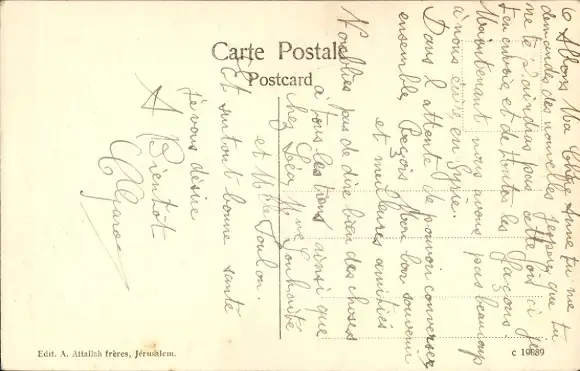 Carte Postale
Postcard
6 Allons Ma Chère Anne tu me
demandes des nouvelles j'espère que tu
ne te plaindras pas cette fois ci je
t'en envoie et de toutes les façons.
Maintenant nous avons pas beaucoup
à nous écrire en Syrie.
Dans l'attente de pouvoir converser
ensemble Reçois Mon bon souvenir
et meilleures amitiés
N'oublies pas de dire bien des choses
à tous les tiens ainsi que
chez Léa, Mme
et Mlle Toulon.
Et surtout bonne santé
je vous désire
A Bientôt
Edit. A. Attallah frères, Jérusalem.
c 19889